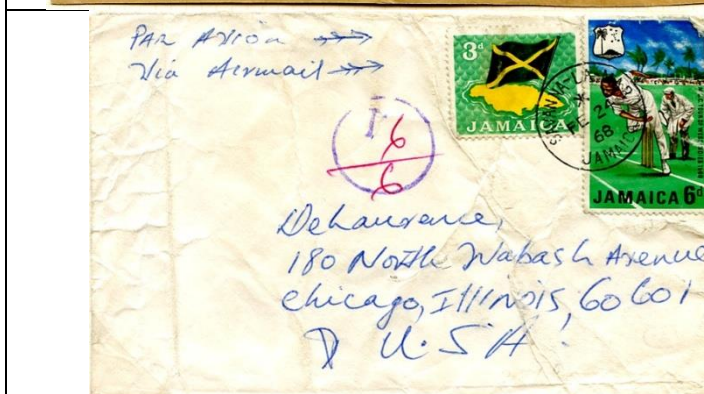 PAR AVION
Via Airmail
3d
JAMAICA
JAMAICA 6d
FE 24
68
JAMAICA
T
6
6
DeLaurence,
180 North Wabash Avenue
Chicago, ILLINOIS, 60601
U.S.A.